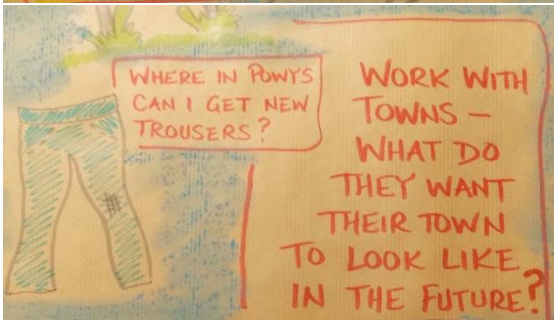 WHERE IN POWYS
CAN I GET NEW
TROUSERS?
WORK WITH
TOWNS –
WHAT DO
THEY WANT
THEIR TOWN
TO LOOK LIKE
IN THE FUTURE?